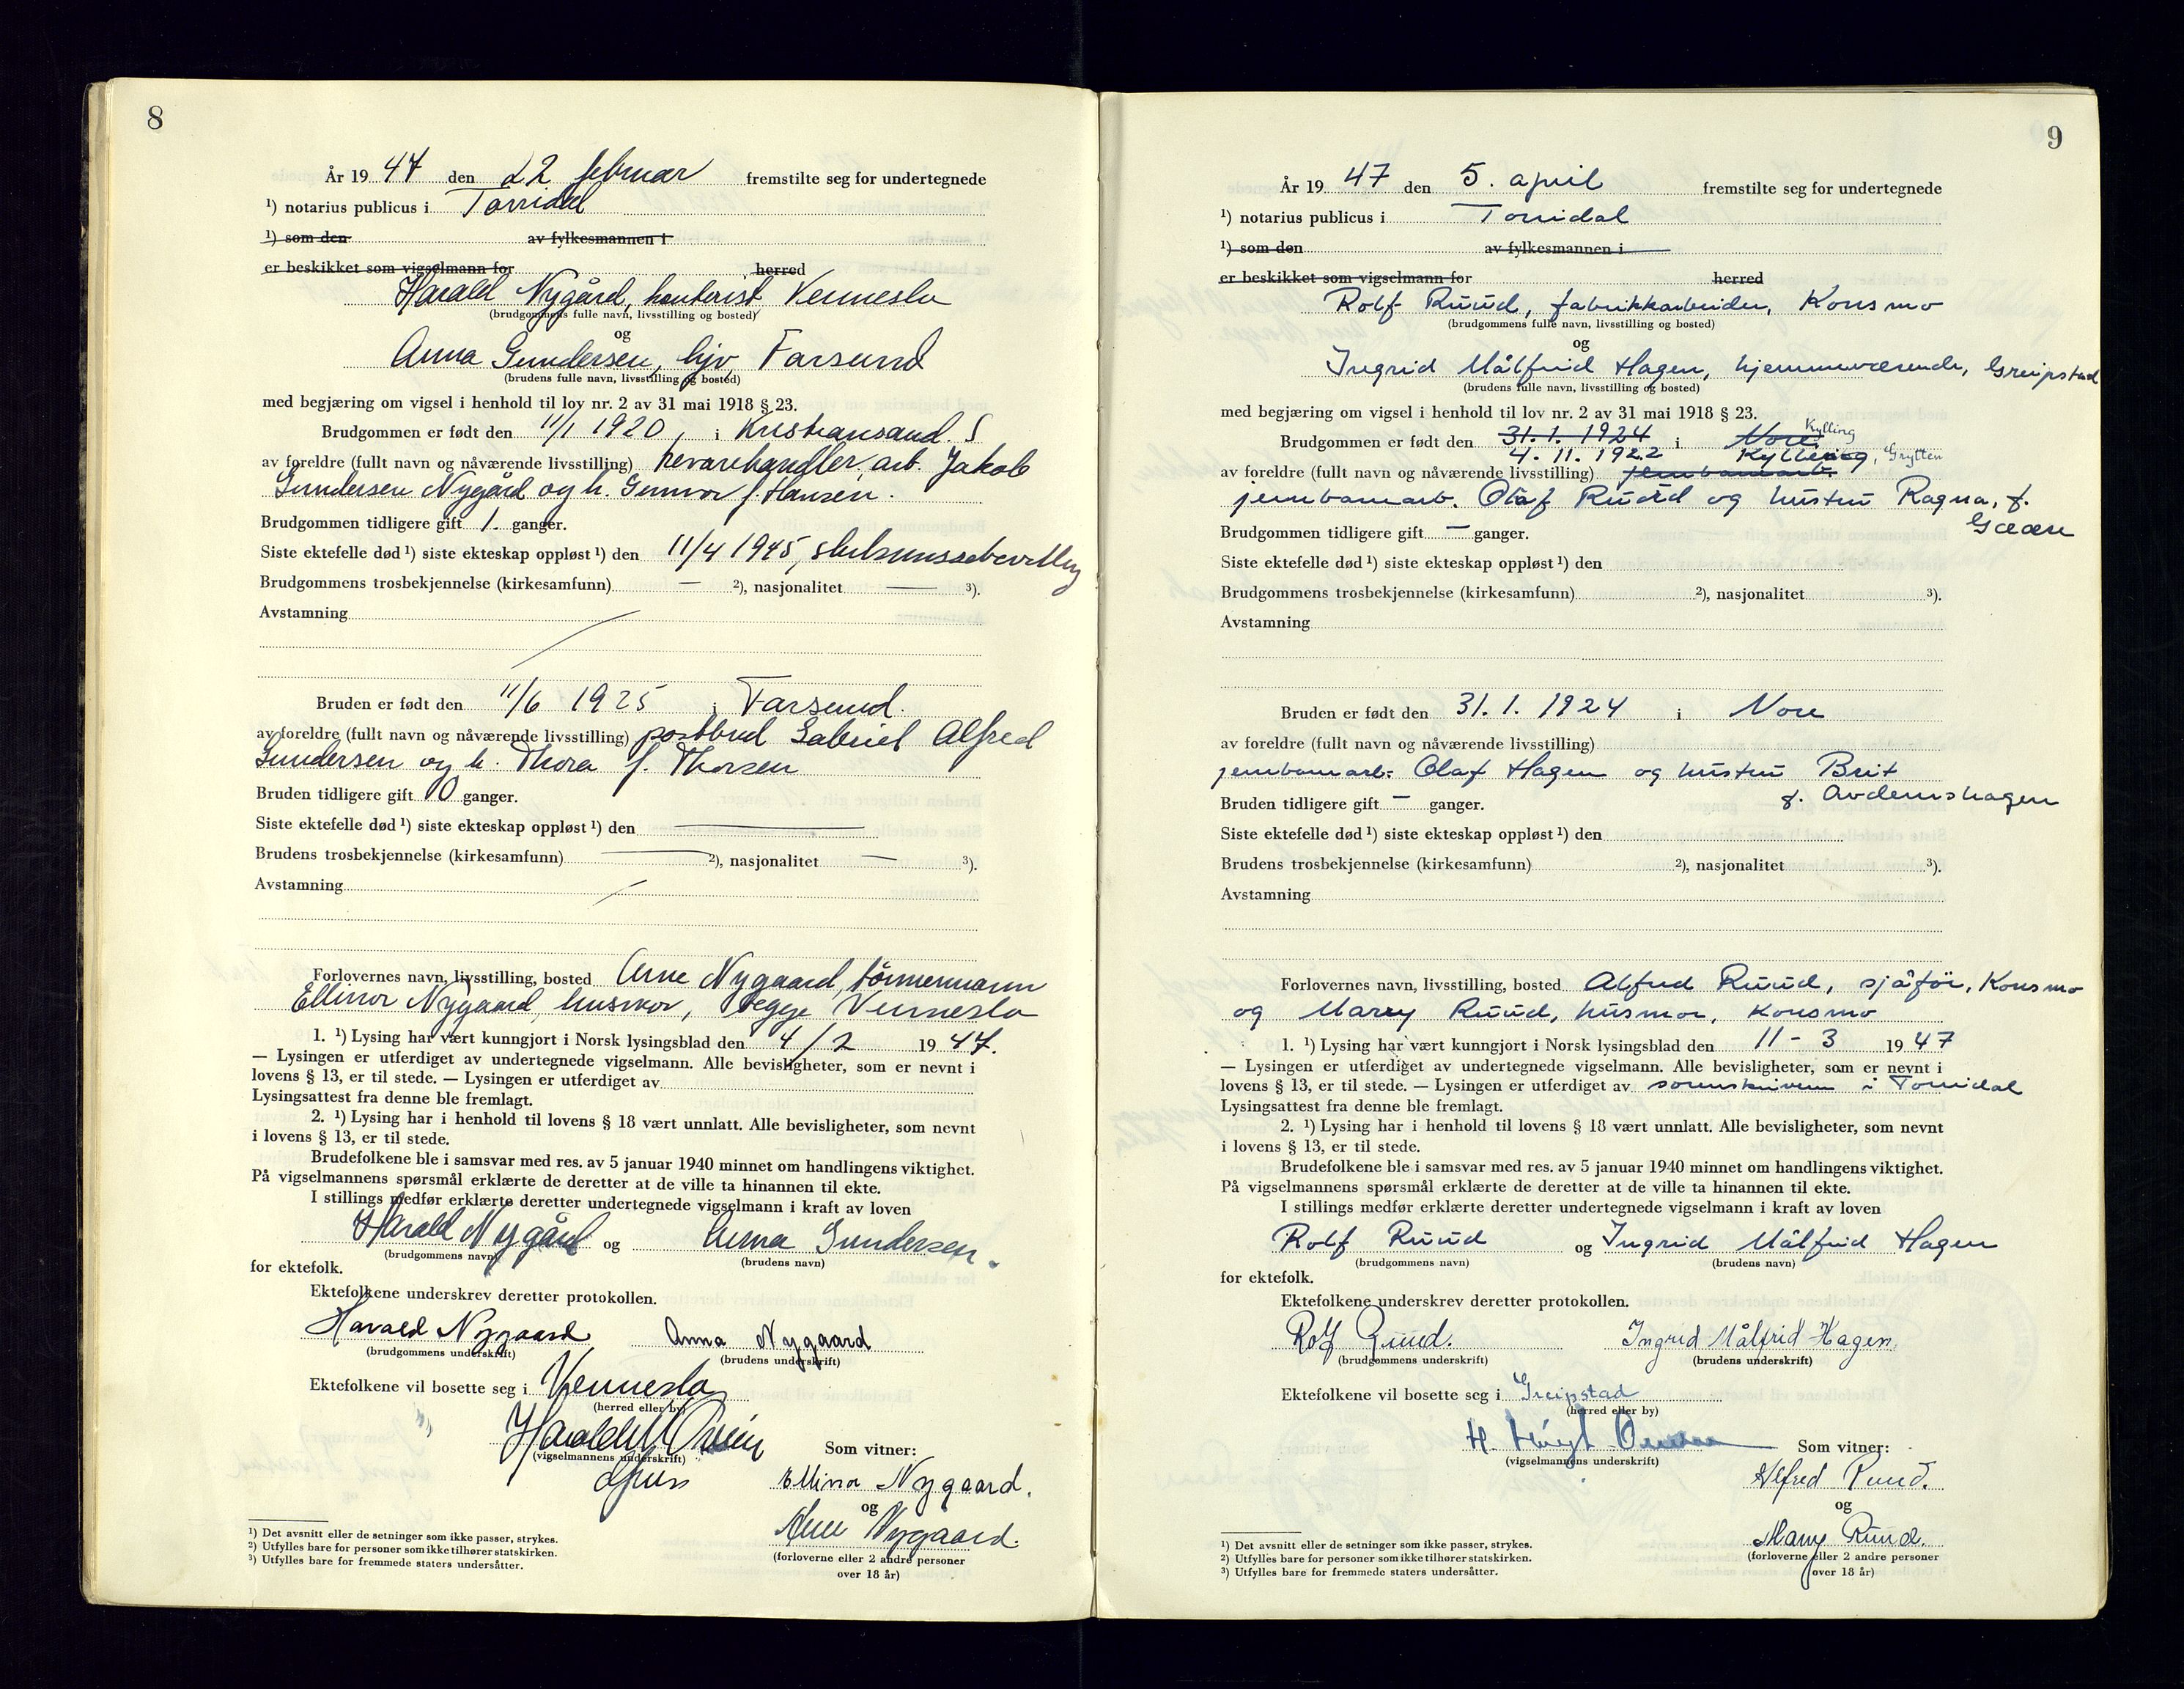 8
År 19 47 den 22 februar fremstilte seg for undertegnede
¹) notarius publicus i Torridal
¹) som den av fylkesmannen i
er beskikket som vigselmann for herred
Harald Nygård, kontorist Vennesla
(brudgommens fulle navn, livsstilling og bosted)
og
Anna Gundersen, hjv, Farsund
(brudens fulle navn, livsstilling og bosted)
med begjæring om vigsel i henhold til lov nr. 2 av 31 mai 1918 § 23.
Brudgommen er født den 11/1 1920, i Kristiansand. S
av foreldre (fullt navn og nåværende livsstilling) arb. Jakob
Gundersen Nygård og h. Gunvor f. Hansen.
Brudgommen tidligere gift 1. ganger.
Siste ektefelle død ¹) siste ekteskap oppløst ¹) den 11/4 1945,
Brudgommens trosbekjennelse (kirkesamfunn) — ²), nasjonalitet — ³).
Avstamning
Bruden er født den 11/6 1925 i Farsund.
av foreldre (fullt navn og nåværende livsstilling) postbud Gabriel Alfred
Gundersen og h. Thora f. Thorsen
Bruden tidligere gift 0 ganger.
Siste ektefelle død ¹) siste ekteskap oppløst ¹) den —
Brudens trosbekjennelse (kirkesamfunn) — ²), nasjonalitet — ³).
Avstamning —
Forlovernes navn, livsstilling, bosted Arne Nygaard, tömmermann
Ellinor Nygaard, husmor, begge Vennesla
1. ¹) Lysing har vært kunngjort i Norsk lysingsblad den 4/2 19 47.
— Lysingen er utferdiget av undertegnede vigselmann. Alle bevisligheter, som er nevnt i
lovens § 13, er til stede. — Lysingen er utferdiget av
Lysingsattest fra denne ble fremlagt.
2. ¹) Lysing har i henhold til lovens § 18 vært unnlatt. Alle bevisligheter, som nevnt
i lovens § 13, er til stede.
Brudefolkene ble i samsvar med res. av 5 januar 1940 minnet om handlingens viktighet.
På vigselmannens spørsmål erklærte de deretter at de ville ta hinannen til ekte.
I stillings medfør erklærte deretter undertegnede vigselmann i kraft av loven
Harald Nygård og Anna Gundersen.
(brudgommens navn) (brudens navn)
for ektefolk.
Ektefolkene underskrev deretter protokollen.
Harald Nygaard Anna Nygaard
(brudgommens underskrift) (brudens underskrift)
Ektefolkene vil bosette seg i Vennesla
(herred eller by)
Som vitner:
(vigselmannens underskrift)
Ellinor Nygaard.
og
Arne Nygaard.
(forloverne eller 2 andre personer
over 18 år)
¹) Det avsnitt eller de setninger som ikke passer, strykes.
²) Utfylles bare for personer som ikke tilhører statskirken.
³) Utfylles bare for fremmede staters undersåtter.
9
År 19 47 den 5. april fremstilte seg for undertegnede
¹) notarius publicus i Torridal
¹) som den av fylkesmannen i
er beskikket som vigselmann for herred
Rolf Ruud, fabrikkarbeider, Konsmo
(brudgommens fulle navn, livsstilling og bosted)
og
Ingrid Målfrid Hagen, hjemmeværende, Greipstad
(brudens fulle navn, livsstilling og bosted)
med begjæring om vigsel i henhold til lov nr. 2 av 31 mai 1918 § 23.
Kylling
Brudgommen er født den 31.1.1924 i Nore
4.11.1922 Kylling, Grytten
av foreldre (fullt navn og nåværende livsstilling) jernbanearb.
jernbanearb. Olaf Ruud og hustru Ragna, f.
Brudgommen tidligere gift — ganger.
Siste ektefelle død ¹) siste ekteskap oppløst ¹) den
Brudgommens trosbekjennelse (kirkesamfunn) ²), nasjonalitet ³).
Avstamning
Bruden er født den 31.1.1924 i Nore
av foreldre (fullt navn og nåværende livsstilling)
jernbanearb. Olaf Hagen og hustru Brit
f. Avdemshagen
Bruden tidligere gift — ganger.
Siste ektefelle død ¹) siste ekteskap oppløst ¹) den
Brudens trosbekjennelse (kirkesamfunn) ²), nasjonalitet ³).
Avstamning
Forlovernes navn, livsstilling, bosted Alfred Ruud, sjåfør, Konsmo
og Marry Ruud, husmor, Konsmo
1. ¹) Lysing har vært kunngjort i Norsk lysingsblad den 11 - 3 19 47
— Lysingen er utferdiget av undertegnede vigselmann. Alle bevisligheter, som er nevnt i
lovens § 13, er til stede. — Lysingen er utferdiget av sorenskriveren i Torridal
Lysingsattest fra denne ble fremlagt.
2. ¹) Lysing har i henhold til lovens § 18 vært unnlatt. Alle bevisligheter, som nevnt
i lovens § 13, er til stede.
Brudefolkene ble i samsvar med res. av 5 januar 1940 minnet om handlingens viktighet.
På vigselmannens spørsmål erklærte de deretter at de ville ta hinannen til ekte.
I stillings medfør erklærte deretter undertegnede vigselmann i kraft av loven
Rolf Ruud og Ingrid Målfrid Hagen
(brudgommens navn) (brudens navn)
for ektefolk.
Ektefolkene underskrev deretter protokollen.
Rolf Ruud. Ingrid Målfrid Hagen.
(brudgommens underskrift) (brudens underskrift)
Ektefolkene vil bosette seg i Greipstad
(herred eller by)
Som vitner:
(vigselmannens underskrift)
Alfred Ruud.
og
Marry Ruud.
(forloverne eller 2 andre personer
over 18 år)
¹) Det avsnitt eller de setninger som ikke passer, strykes.
²) Utfylles bare for personer som ikke tilhører statskirken.
³) Utfylles bare for fremmede staters undersåtter.